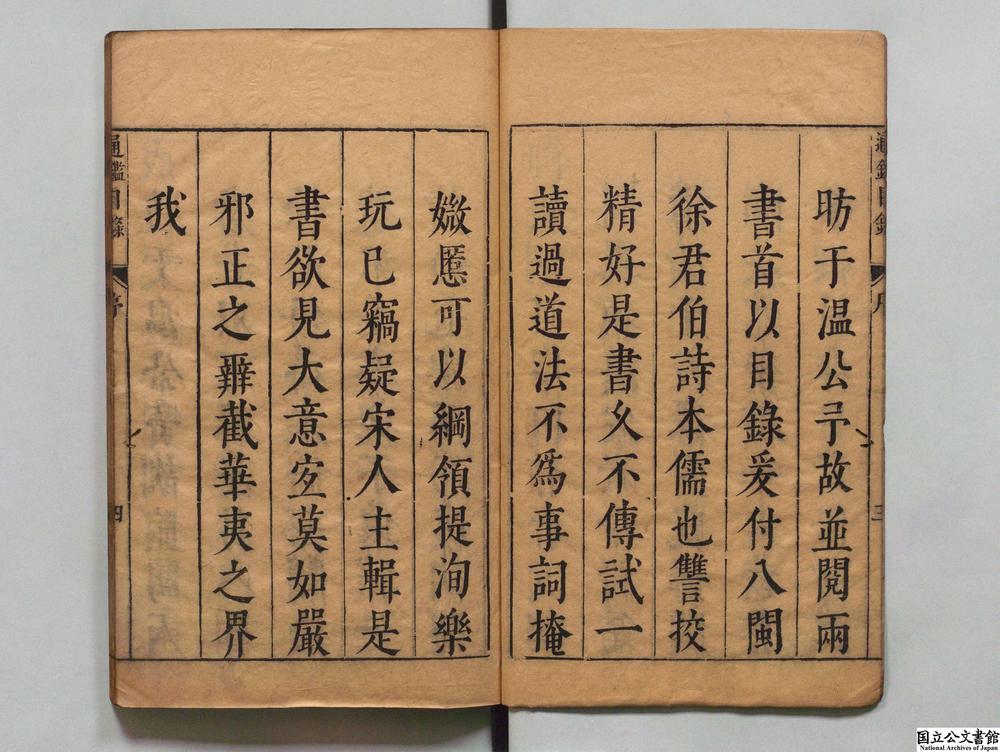 通鑑目錄 序 三
昉于温公予故並閱兩
書首以目錄爰付八閩
徐君伯詩本儒也讐挍
精好是書久不傳試一
讀過道法不爲事詞掩
媺慝可以綱領提洵樂
玩已竊疑宋人主輯是
書欲見大意宐莫如嚴
邪正之辭截華夷之界
我
通鑑目錄 序 四
国立公文書館
National Archives of Japan